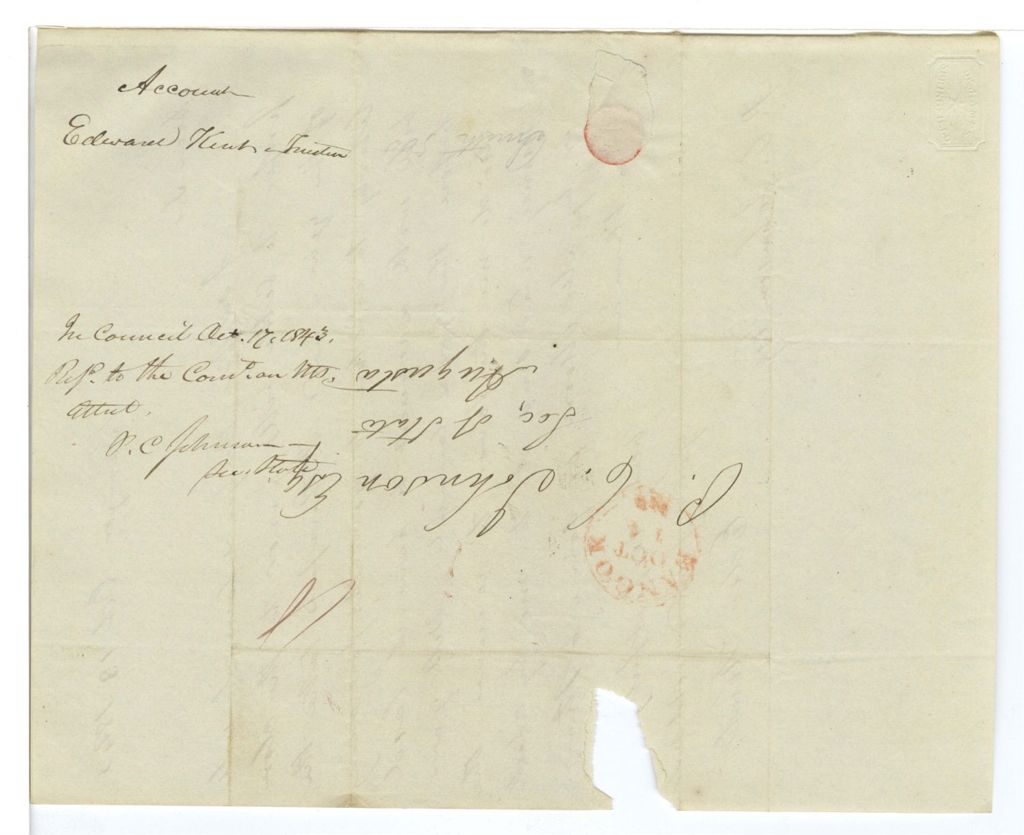 Account
Edward Kent Trustee
In Council Oct. 17, 1843.
Refd. to the Comte. on
P. C. Johnson
Sec. State
P. C. Johnson Esq
Sec, of State
Augusta
BANGOR
OCT
14
ME